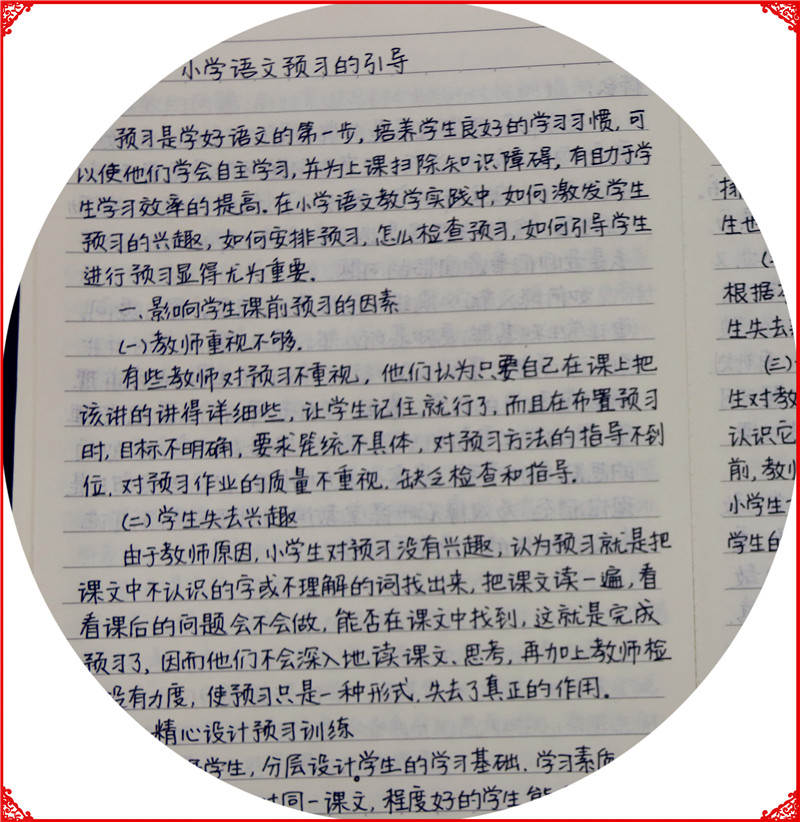 小学语文预习的引导
预习是学好语文的第一步，培养学生良好的学习习惯，可
以使他们学会自主学习，并为上课扫除知识障碍，有助于学
生学习效率的提高。在小学语文教学实践中，如何激发学生
预习的兴趣，如何安排预习，怎么检查预习，如何引导学生
进行预习显得尤为重要。
一、影响学生课前预习的因素
(一)教师重视不够。
有些教师对预习不重视，他们认为只要自己在课上把
该讲的讲得详细些，让学生记住就行了，而且在布置预习
时，目标不明确，要求笼统不具体，对预习方法的指导不到
位，对预习作业的质量不重视，缺乏检查和指导。
(二)学生失去兴趣
由于教师原因，小学生对预习没有兴趣，认为预习就是把
课文中不认识的字或不理解的词找出来，把课文读一遍，看
看课后的问题会不会做，能否在课文中找到，这就是完成
预习了，因而他们不会深入地读课文、思考，再加上教师检
没有力度，使预习只是一种形式，失去了真正的作用。
精心设计预习训练
学生，分层设计学生的学习基础、学习素质
同一课文，程度好的学生能
排
生也
根据
生失去
(三)
生对教
认识它
前，教师
小学生
学生的